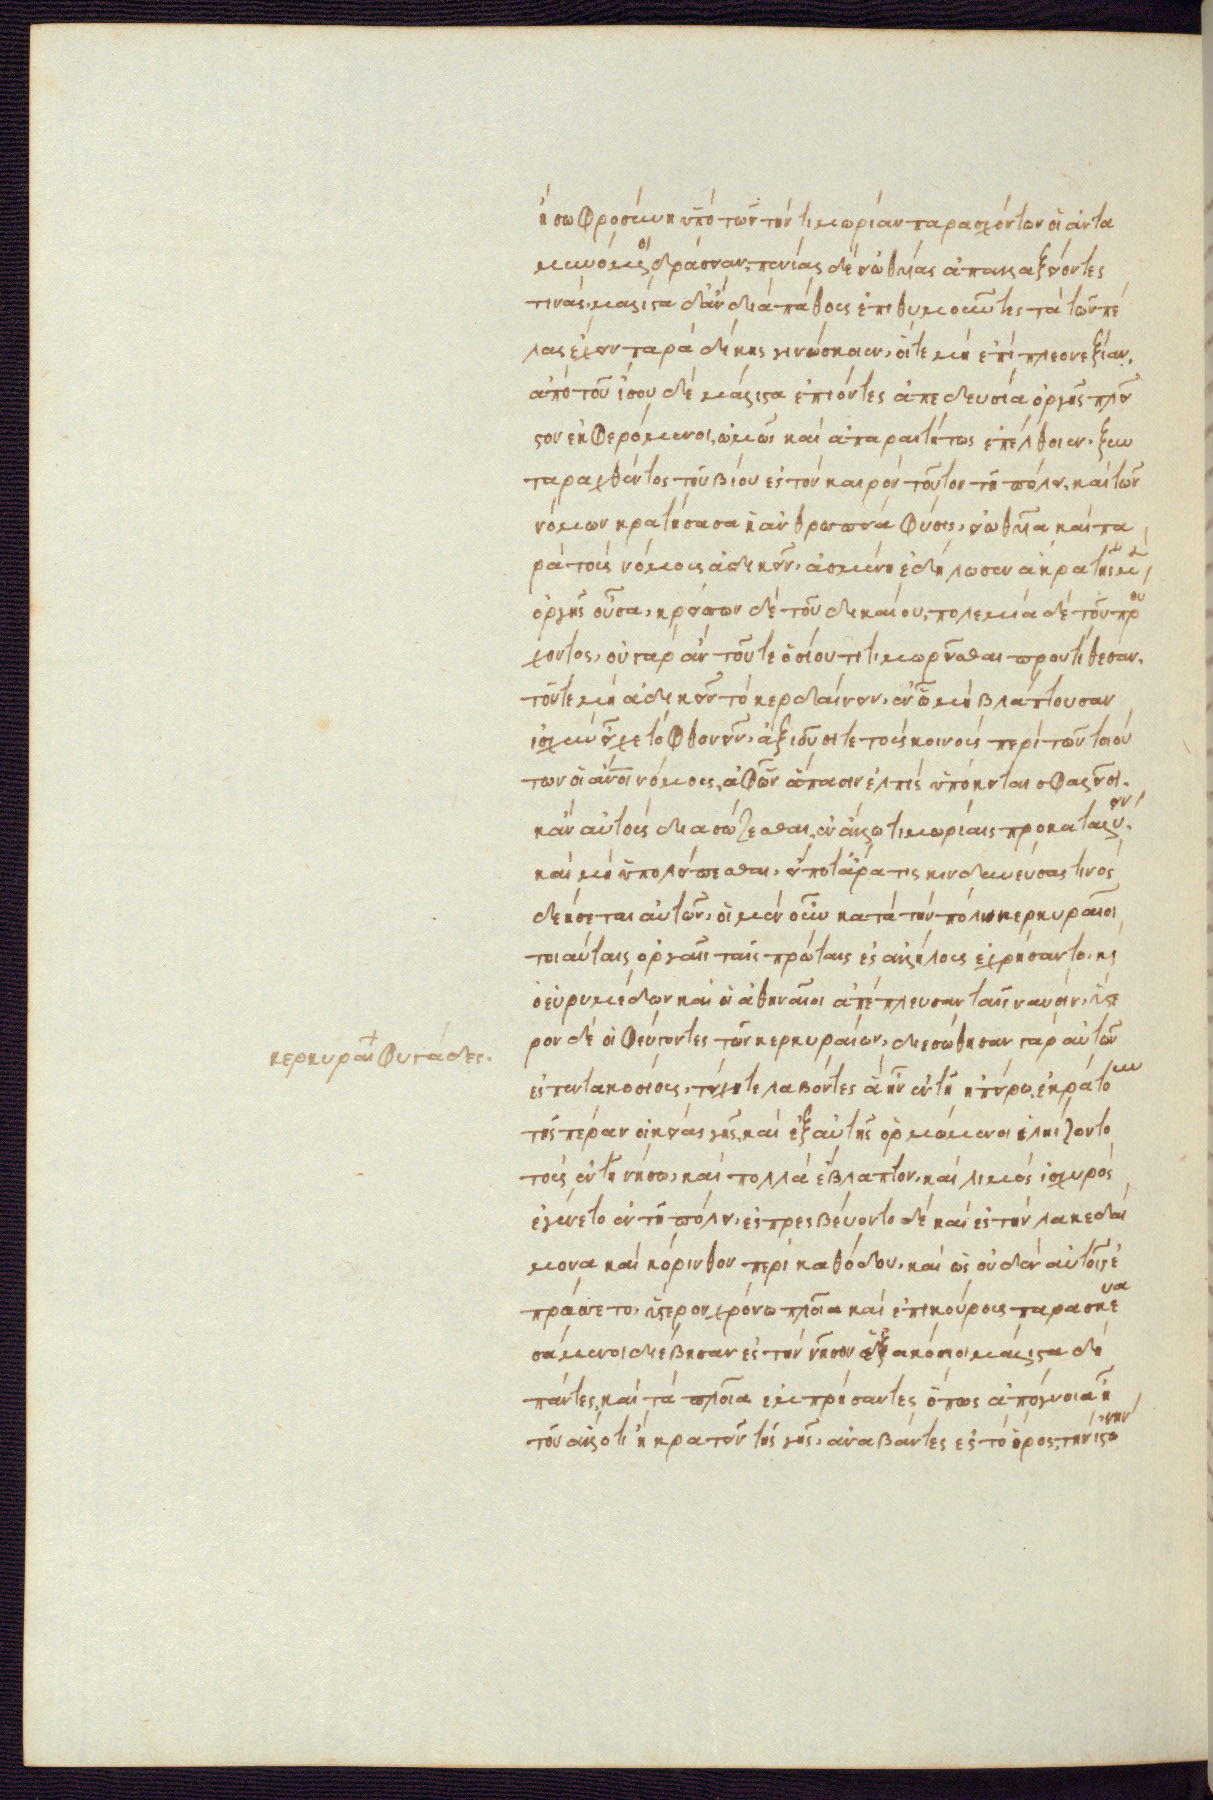 ἢ σωφροσύνη ὑπὸ τῶν τὴν τιμωρίαν παρασχόντων οἱ ἀντα
μυνόμενοι δράσειαν, πενίας δὲ εἰωθυίας ἀπαλλαξείοντες
τινὲς, μάλιστα δ' ἂν διὰ πάθους ἐπιθυμοῦντες τὰ τῶν πέ
λας ἔχειν παρὰ δίκης γινώσκοιεν, οἵ τε μὴ ἐπὶ πλεονεξίαν,
ἀπὸ τοῦ ἴσου δὲ μάλιστα ἐπιόντες ἀπαιδευσία ὀργῆς πλεῖ
στον ἐκφερόμενοι, ὠμῶς καὶ ἀπαραιτήτως ἐπέλθοιεν. ξυν
ταραχθέντος τοῦ βίου ἐς τὸν καιρὸν τοῦτον τῇ πόλει, καὶ τῶν
νόμων κρατήσασα ἡ ἀνθρωπεία φύσις, εἰωθυῖα καὶ πα
ρὰ τοὺς νόμους ἀδικεῖν, ἀσμένη ἐδήλωσεν ἀκρατὴς μὲν
ὀργῆς οὖσα, κρείσσων δὲ τοῦ δικαίου, πολεμία δὲ τοῦ πρού
χοντος, οὐ γὰρ ἂν τοῦ τε ὁσίου τὸ τιμωρεῖσθαι προυτίθεσαν,
τοῦ τε μὴ ἀδικεῖν τὸ κερδαίνειν, ἐν ᾧ μὴ βλάπτουσαν
ἰσχὺν εἶχε τὸ φθονεῖν, ἀξιοῦσί τε τοὺς κοινοὺς περὶ τῶν τοιού
των οἱ ἄνθρωποι νόμους, ἀφ' ὧν ἅπασιν ἐλπὶς ὑπόκειται σφαλεῖσι.
κἂν αὐτοὺς διασώζεσθαι, ἐν ἄλλων τιμωρίαις προκαταλύειν,
καὶ μὴ ὑπολείπεσθαι, εἴ ποτε ἄρα τις κινδυνεύσας τινὸς
δεήσεται αὐτῶν, οἱ μὲν οὖν κατὰ τὴν πόλιν κερκυραῖοι
τοιαύταις ὀργαῖς ταῖς πρώταις ἐς ἀλλήλους ἐχρήσαντο. καὶ
ὁ εὐρυμέδων καὶ οἱ ἀθηναῖοι ἀπέπλευσαν ταῖς ναυσίν, ὕστε
ρον δὲ οἱ φεύγοντες τῶν κερκυραίων, διεσώθησαν γὰρ αὐτῶν
ἐς πεντακοσίους, τείχη τε λαβόντες ἃ ἦν ἐν τῇ ἠπείρω, ἐκράτουν
τῆς πέραν οἰκείας γῆς, καὶ ἐξ αὐτῆς ὁρμώμενοι ἐληίζοντο
τοὺς ἐν τῇ νήσω, καὶ πολλὰ ἔβλαπτον, καὶ λιμὸς ἰσχυρὸς
ἐγένετο ἐν τῇ πόλει, ἐπρεσβεύοντο δὲ καὶ ἐς τὴν λακεδαί
μονα καὶ κόρινθον περὶ καθόδου, καὶ ὡς οὐδὲν αὐτοῖς ἐ
πράσσετο, ὕστερον χρόνω πλοῖα καὶ ἐπικούρους παρασκευα
σάμενοι διέβησαν ἐς τὴν νῆσον ἑξακόσιοι μάλιστα οἱ
πάντες, καὶ τὰ πλοῖα ἐμπρήσαντες ὅπως ἀπόγνοια ᾖ
τοῦ ἄλλό τι ἢ κρατεῖν τῆς γῆς, ἀναβάντες ἐς τὸ ὄρος, τὴν ἰστώνην
κερκυραίων φυγάδες.